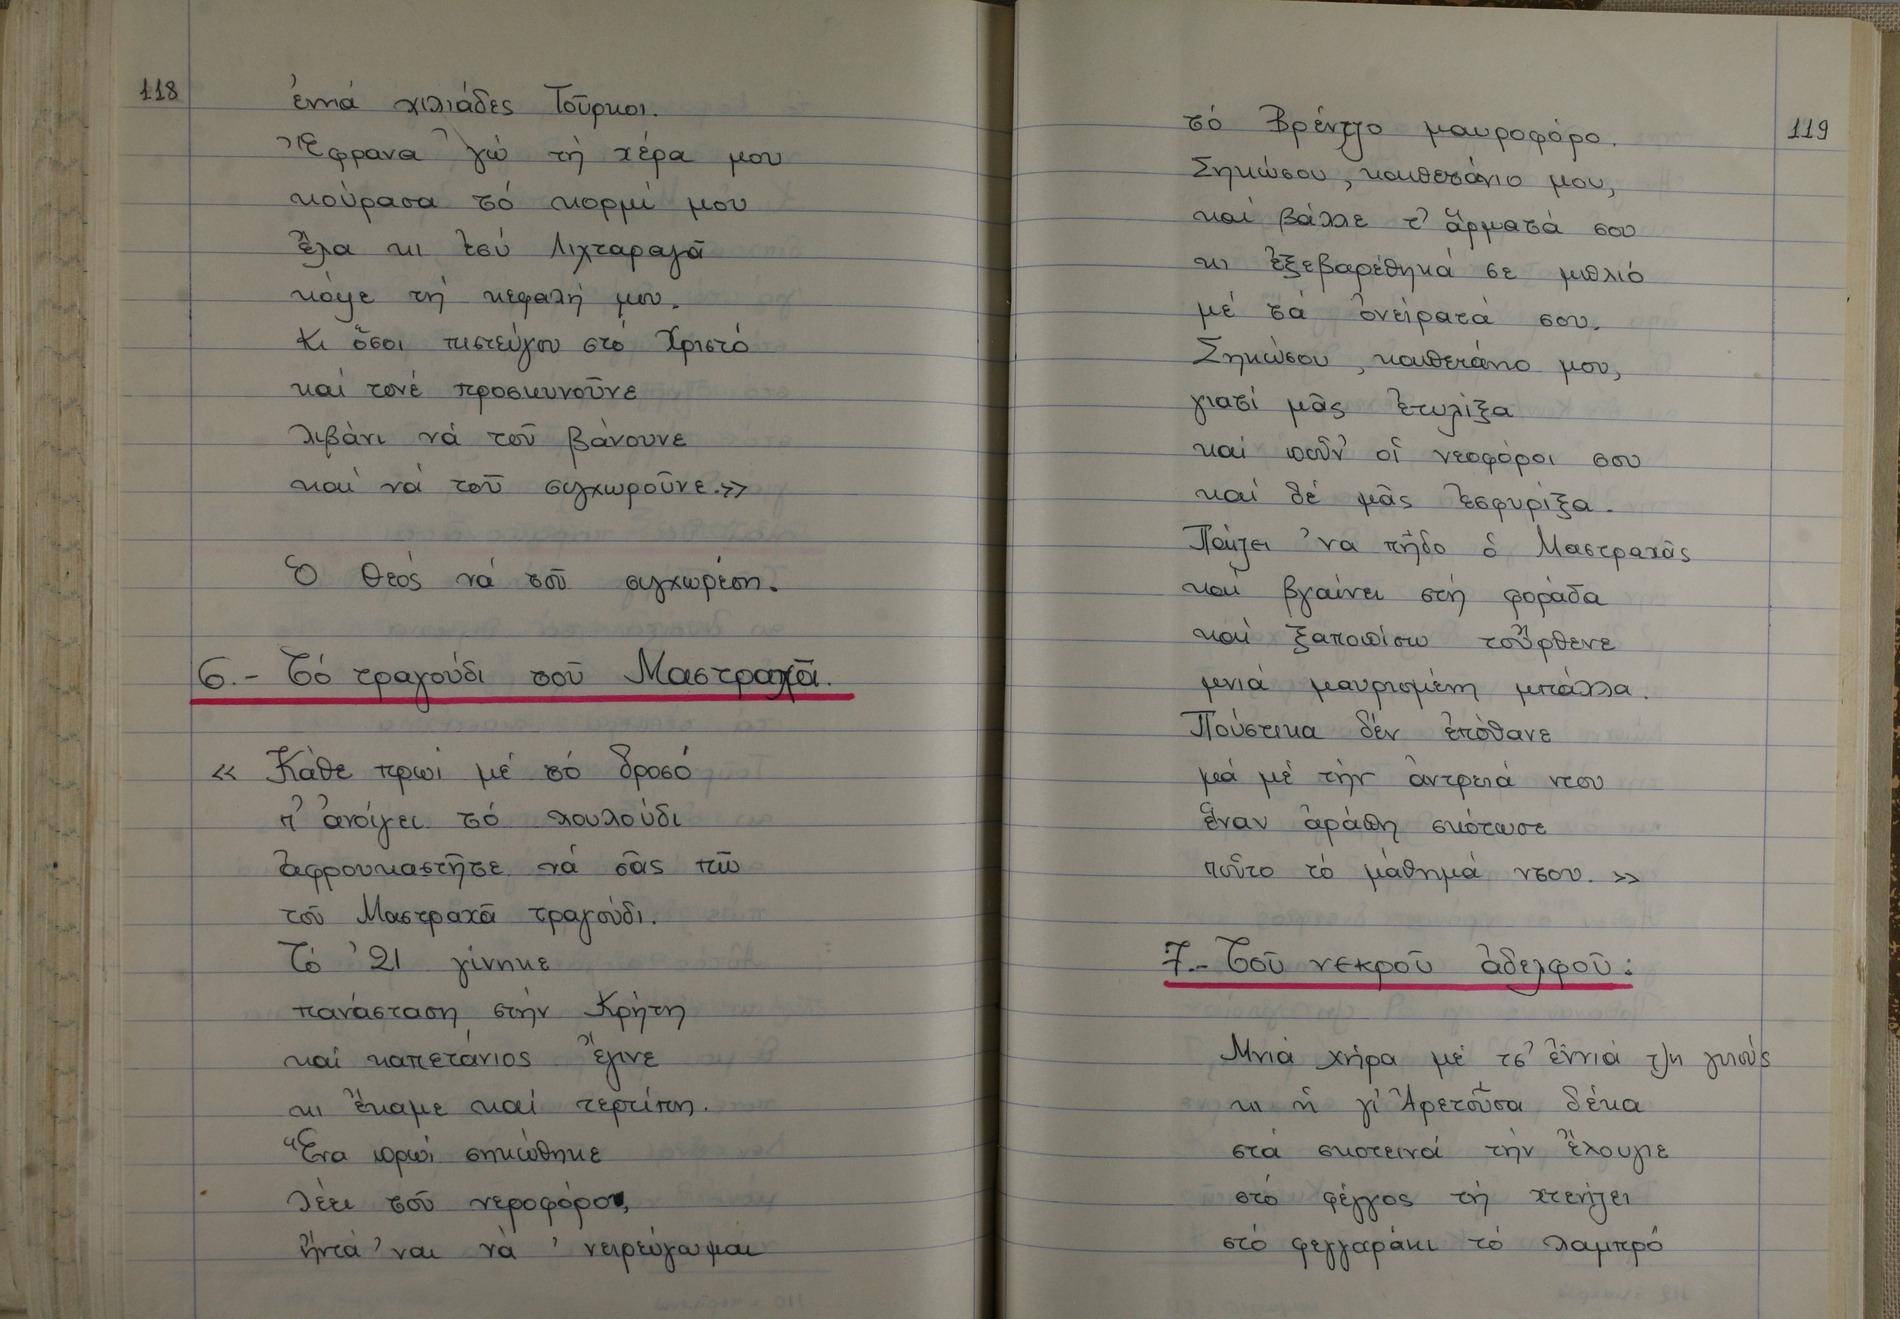 118
ἐννιά χιλιάδες Τοῦρκοι.
Ἔφρανα 'γώ τή χέρα μου
κούρασα τό κορμί μου
ἔλα κι ἐσύ Λιχταραγᾶ
κόψε τή κεφαλή μου.
Κι ὅσοι πιστεύγου στό Χριστό
καί τονέ προσκυνοῦνε
λιβάνι νά τοῦ βάνουνε
καί νά τοῦ συχωροῦνε.»
Ὁ Θεός νά τοῦ συχωρέση.
6.- Τό τραγούδι τοῦ Μαστραχᾶ.
« Κάθε πρωί μέ τό δροσό
π' ἀνοίγει τό λουλούδι
ἀφρουκαστῆτε νά σᾶς πῶ
τοῦ Μαστραχᾶ τραγούδι.
Τό '21 γίνηκε
πανάσταση στήν Κρήτη
καί καπετάνιος ἔγινε
κι ἔκαμε καί τερτίπη.
Ἕνα πρωί σηκώθηκε
λέει τοῦ νεροφόρου,
ἤντά 'ναι νά 'νειρεύγωμαι
119
τό Βρέντζο μαυροφόρο.
Σηκώσου, καπετάνιο μου,
καί βάλλε τ' ἄρματά σου
κι ἐξεβαρέθηκά σε μπλιό
μέ τά ὀνείρατά σου.
Σηκώσου, καπετάνιο μου,
γιατί μᾶς ἐτυλίξα
καί ποῦν' οἱ νεοφόροι σου
καί δέ μᾶς ἐσφυρίξα.
Παίζει 'να πῆδο ὁ Μαστραχᾶς
καί βγαίνει στή φοράδα
καί ξαποπίσω τοὔρθενε
μνιά μαυρισμένη μπάλλα.
Πούστικα δέν ἐπόθανε
μά μέ τήν ἀντρειά ντου
ἕναν ἀράπη σκότωσε
ποὖτο τό μάθημά ντου. »
7.- Τοῦ νεκροῦ ἀδελφοῦ:
Μνιά χήρα μέ τσ' ἐννιά τζη γιούς
κι ἡ γἰ Ἀρετοῦσα δέκα
στά σκοτεινά τήν ἔλουγιε
στό φέγγος τή χτενίζει
στό φεγγαράκι τό λαμπρό